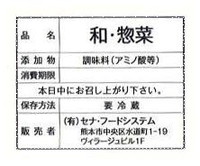 品名 和・惣菜
添加物 調味料(アミノ酸等)
消費期限
本日中にお召し上がり下さい。
保存方法 要冷蔵
販売者 (有)セナ・フードシステム
熊本市中央区水道町1-19
ヴィラージュビル1F